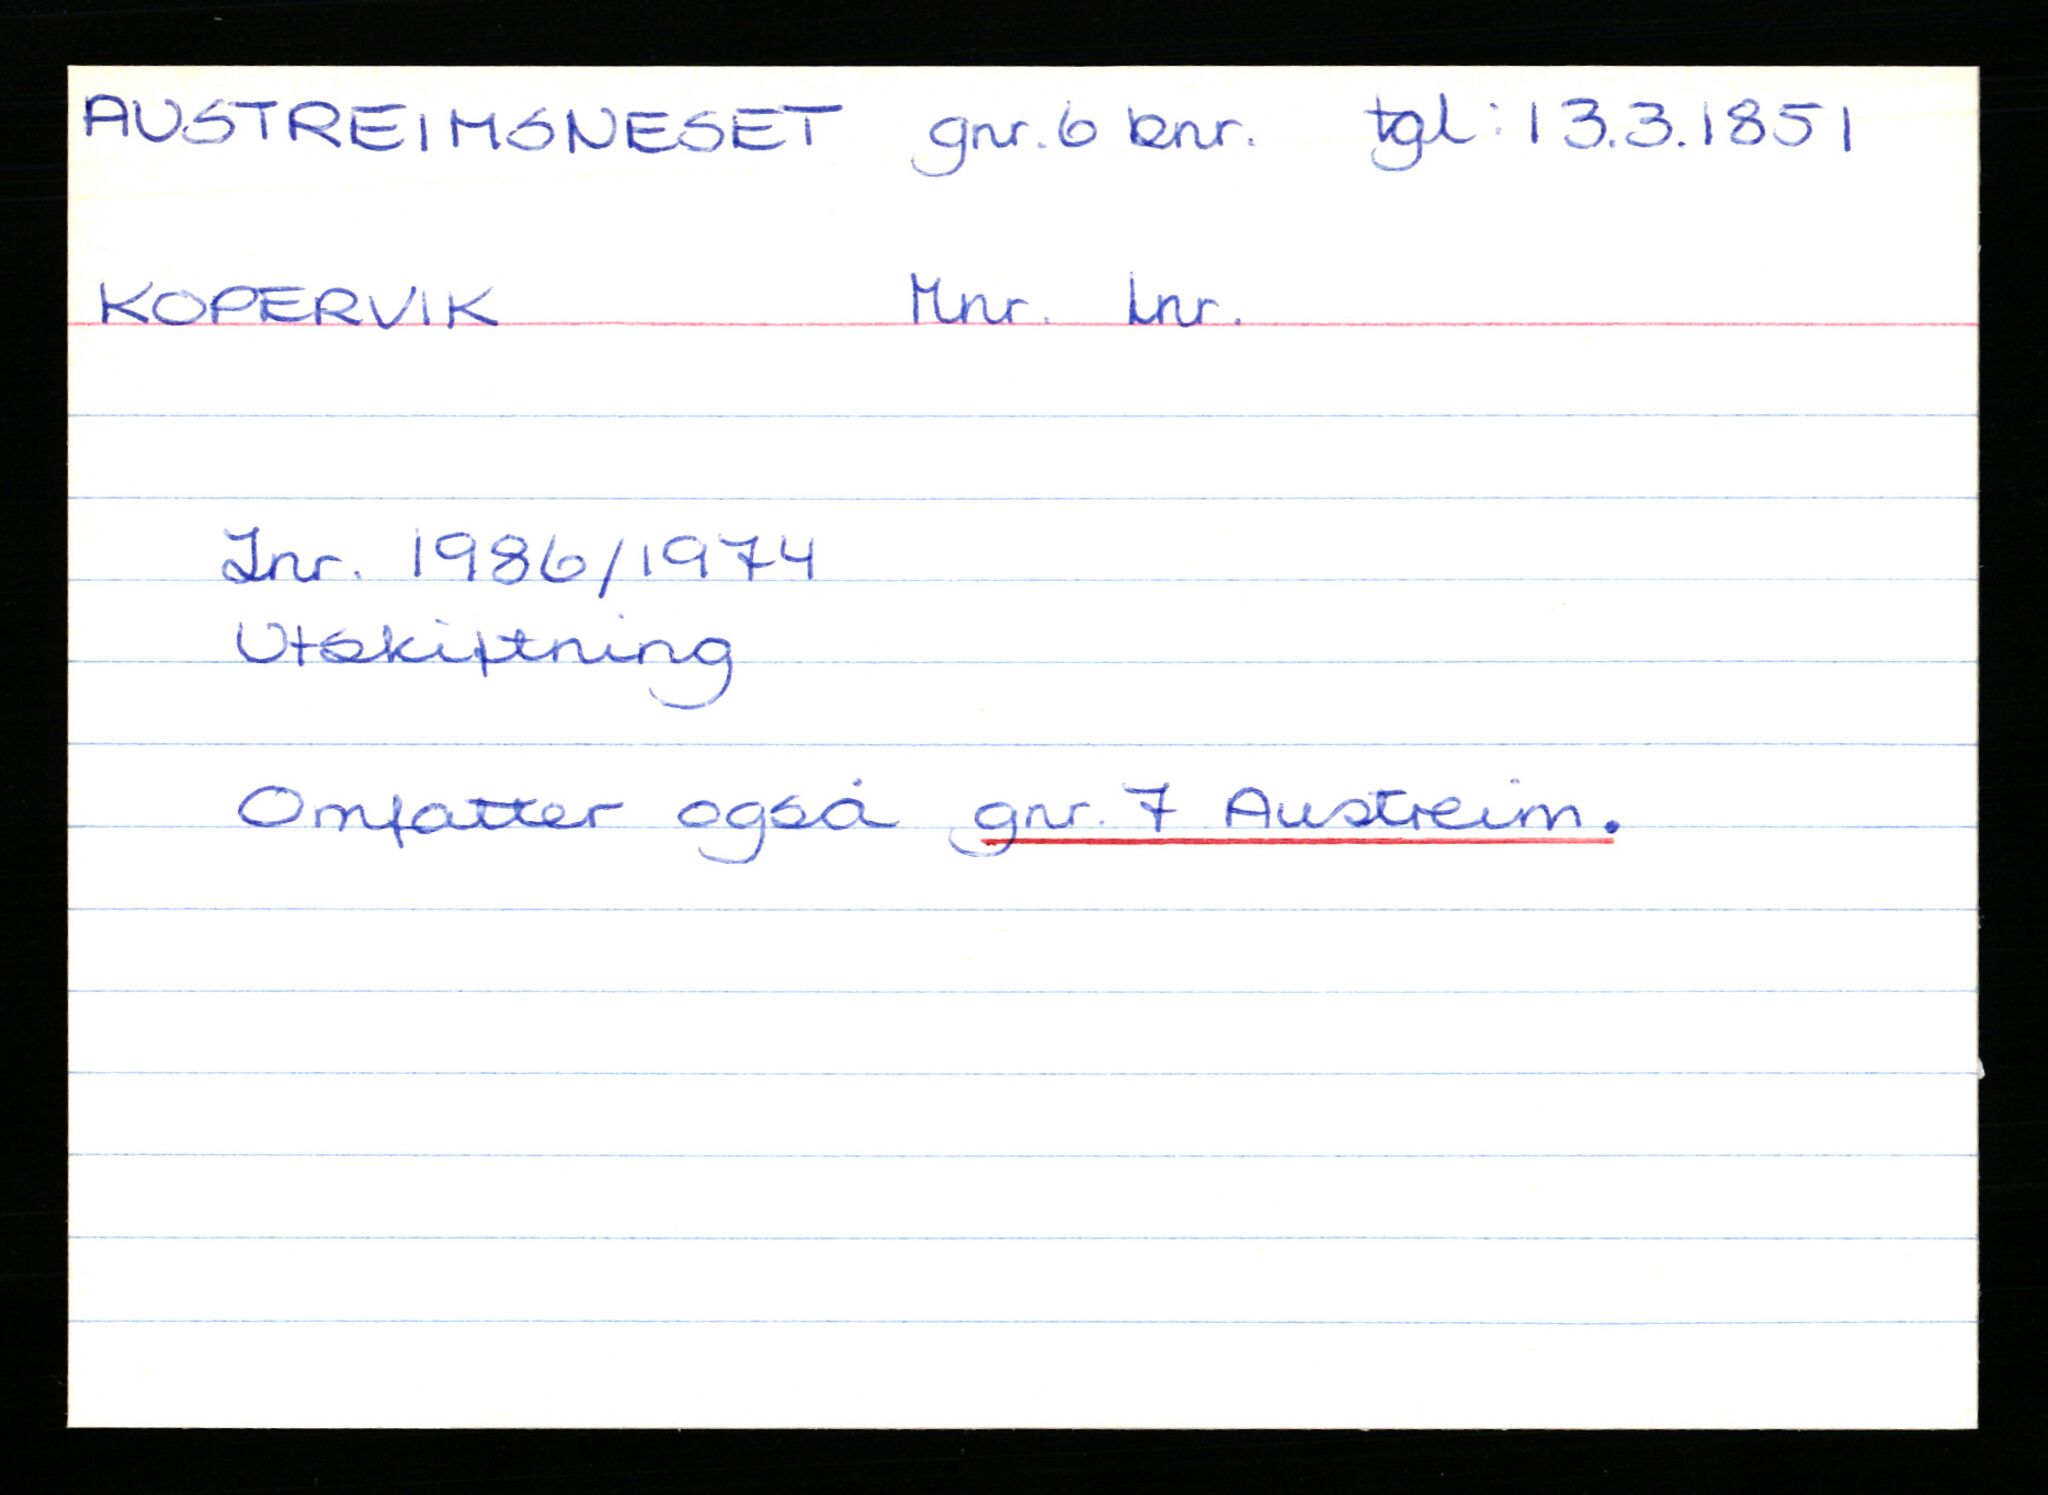 AUSTREIMSNESET gnr. 6 bnr. tgl: 13.3.1851
KOPERVIK Mnr. Lnr.
Jnr. 1986/1974
Utskiftning
Omfatter også gnr. 7 Austreim.